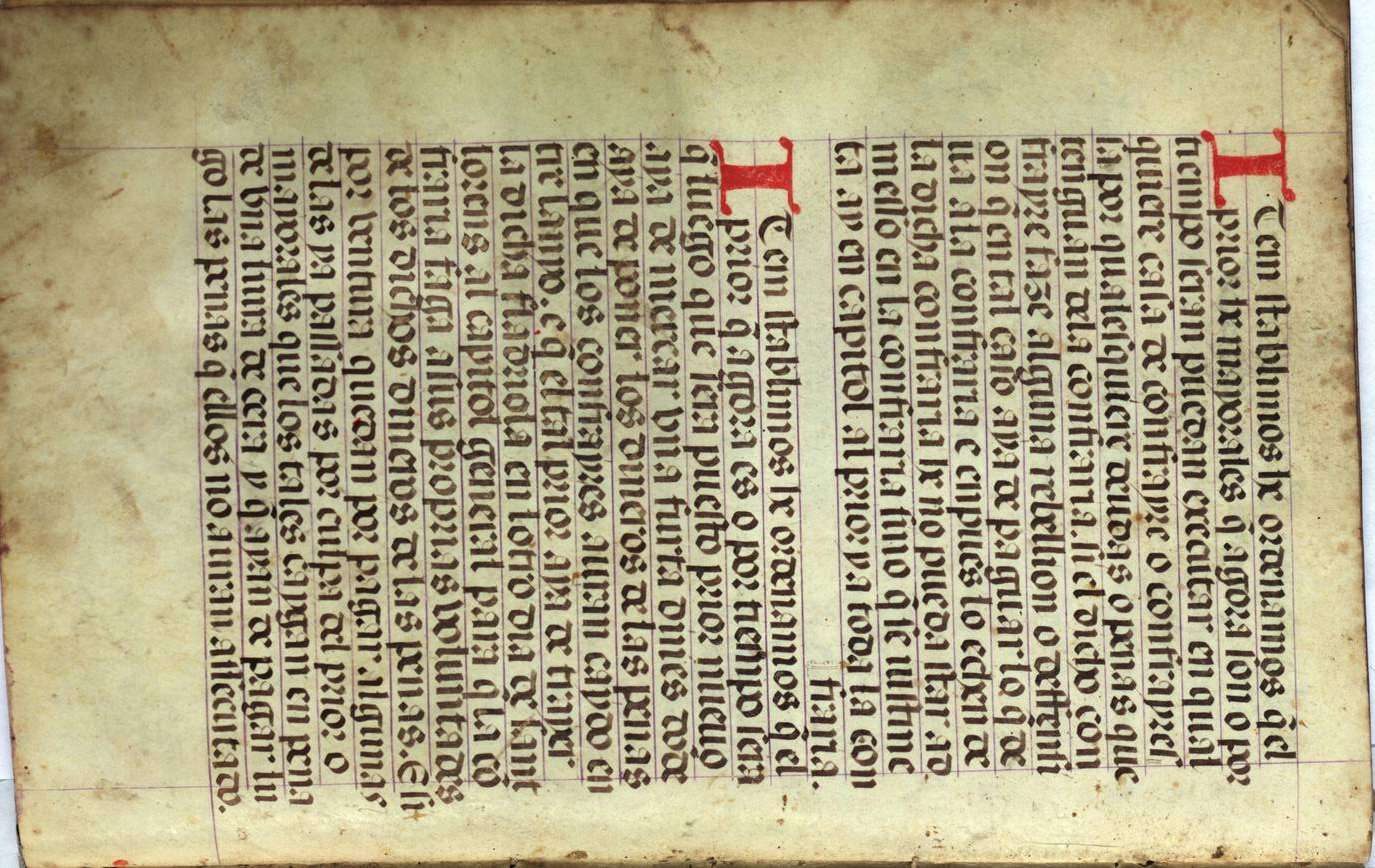 Item stablimos ⁊ ordenamos q̃ el
prior ⁊ mayorales q̃ agora son o por
tiempo seran puedan executar en qual
quiere casa de confrayre o confrayres
sa por qualesquiere deudas o penas que
tengan dela confraria. si el dicho con
frayre faze alguna rebellion o defensi
on q̃ en tal caso aya de pagar lo q̃ de
ua a la confraria e enpues lo echen de
la dicha confraria ⁊ no pueda star ad
medio en la confraria sino q̃ se
ta ay en capitol al prior ya toda la con
fraria.
Item stablimos ⁊ ordenamos q̃ el
prior q̃ agora es o por tiempo sera
q̃ luego que sera puesto prior nueuo
aya de mercar vna dode
aya de poner los dineros de las penas
en que los confrayres auran caydo en
tre lanyo. e q̃ el tal prior aya de trayer
la dicha fladriola en lotro dia de sant
lorens al capitol general para q̃ la cō
fraria faga a sus propias voluntades
de los dichos dineros de las penas. E si
por ventura quedan por pagar algunas
de las ya passadas por culpa del prior o
mayorales que los tales cayan en pena
de vna liura de cera y q̃ ayan de pagar lu
go las penas q̃ ellos no auran asecutado.